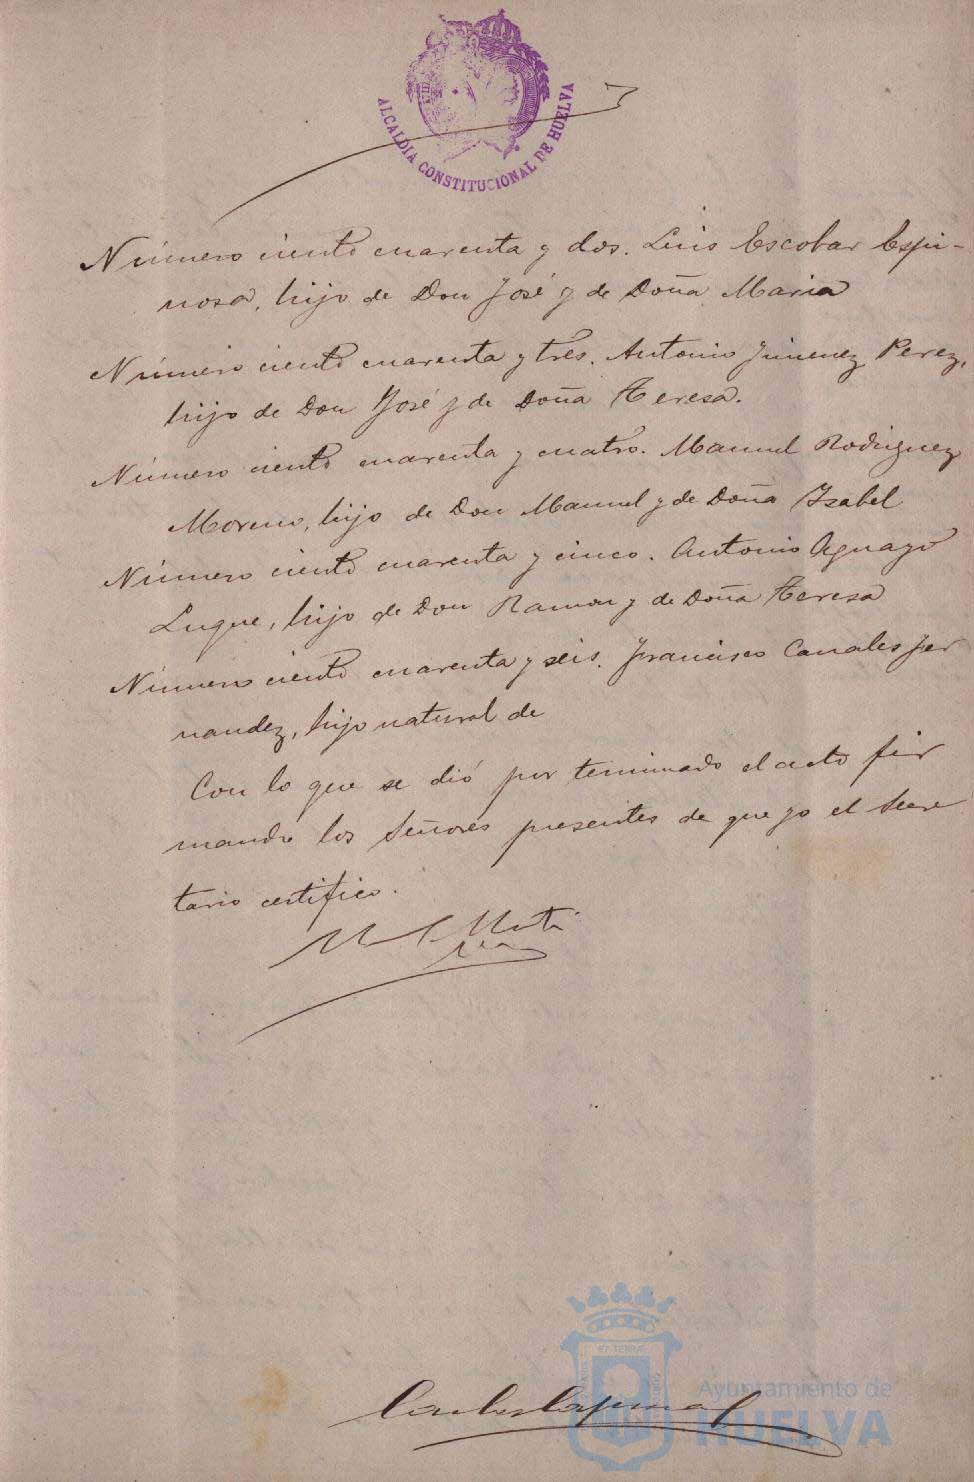 ALCALDIA CONSTITUCIONAL DE HUELVA
Número ciento cuarenta y dos. Luis Escobar Espi-
nosa, hijo de Don José y de Doña Maria
Número ciento cuarenta y tres. Antonio Jimenez Perez,
hijo de Don José y de Doña Teresa.
Número ciento cuarenta y cuatro. Manuel Rodriguez
Moreno, hijo de Don Manuel y de Doña Isabel
Número ciento cuarenta y cinco. Antonio Aguayo
Luque, hijo de Don Ramon y de Doña Teresa
Número ciento cuarenta y seis. Francisco Canales Fer
nandez, hijo natural de
Con lo que se dió por terminado el acto fir
mando los Señores presentes de que yo el Secre
tario certifico.
Ayuntamiento de
HUELVA